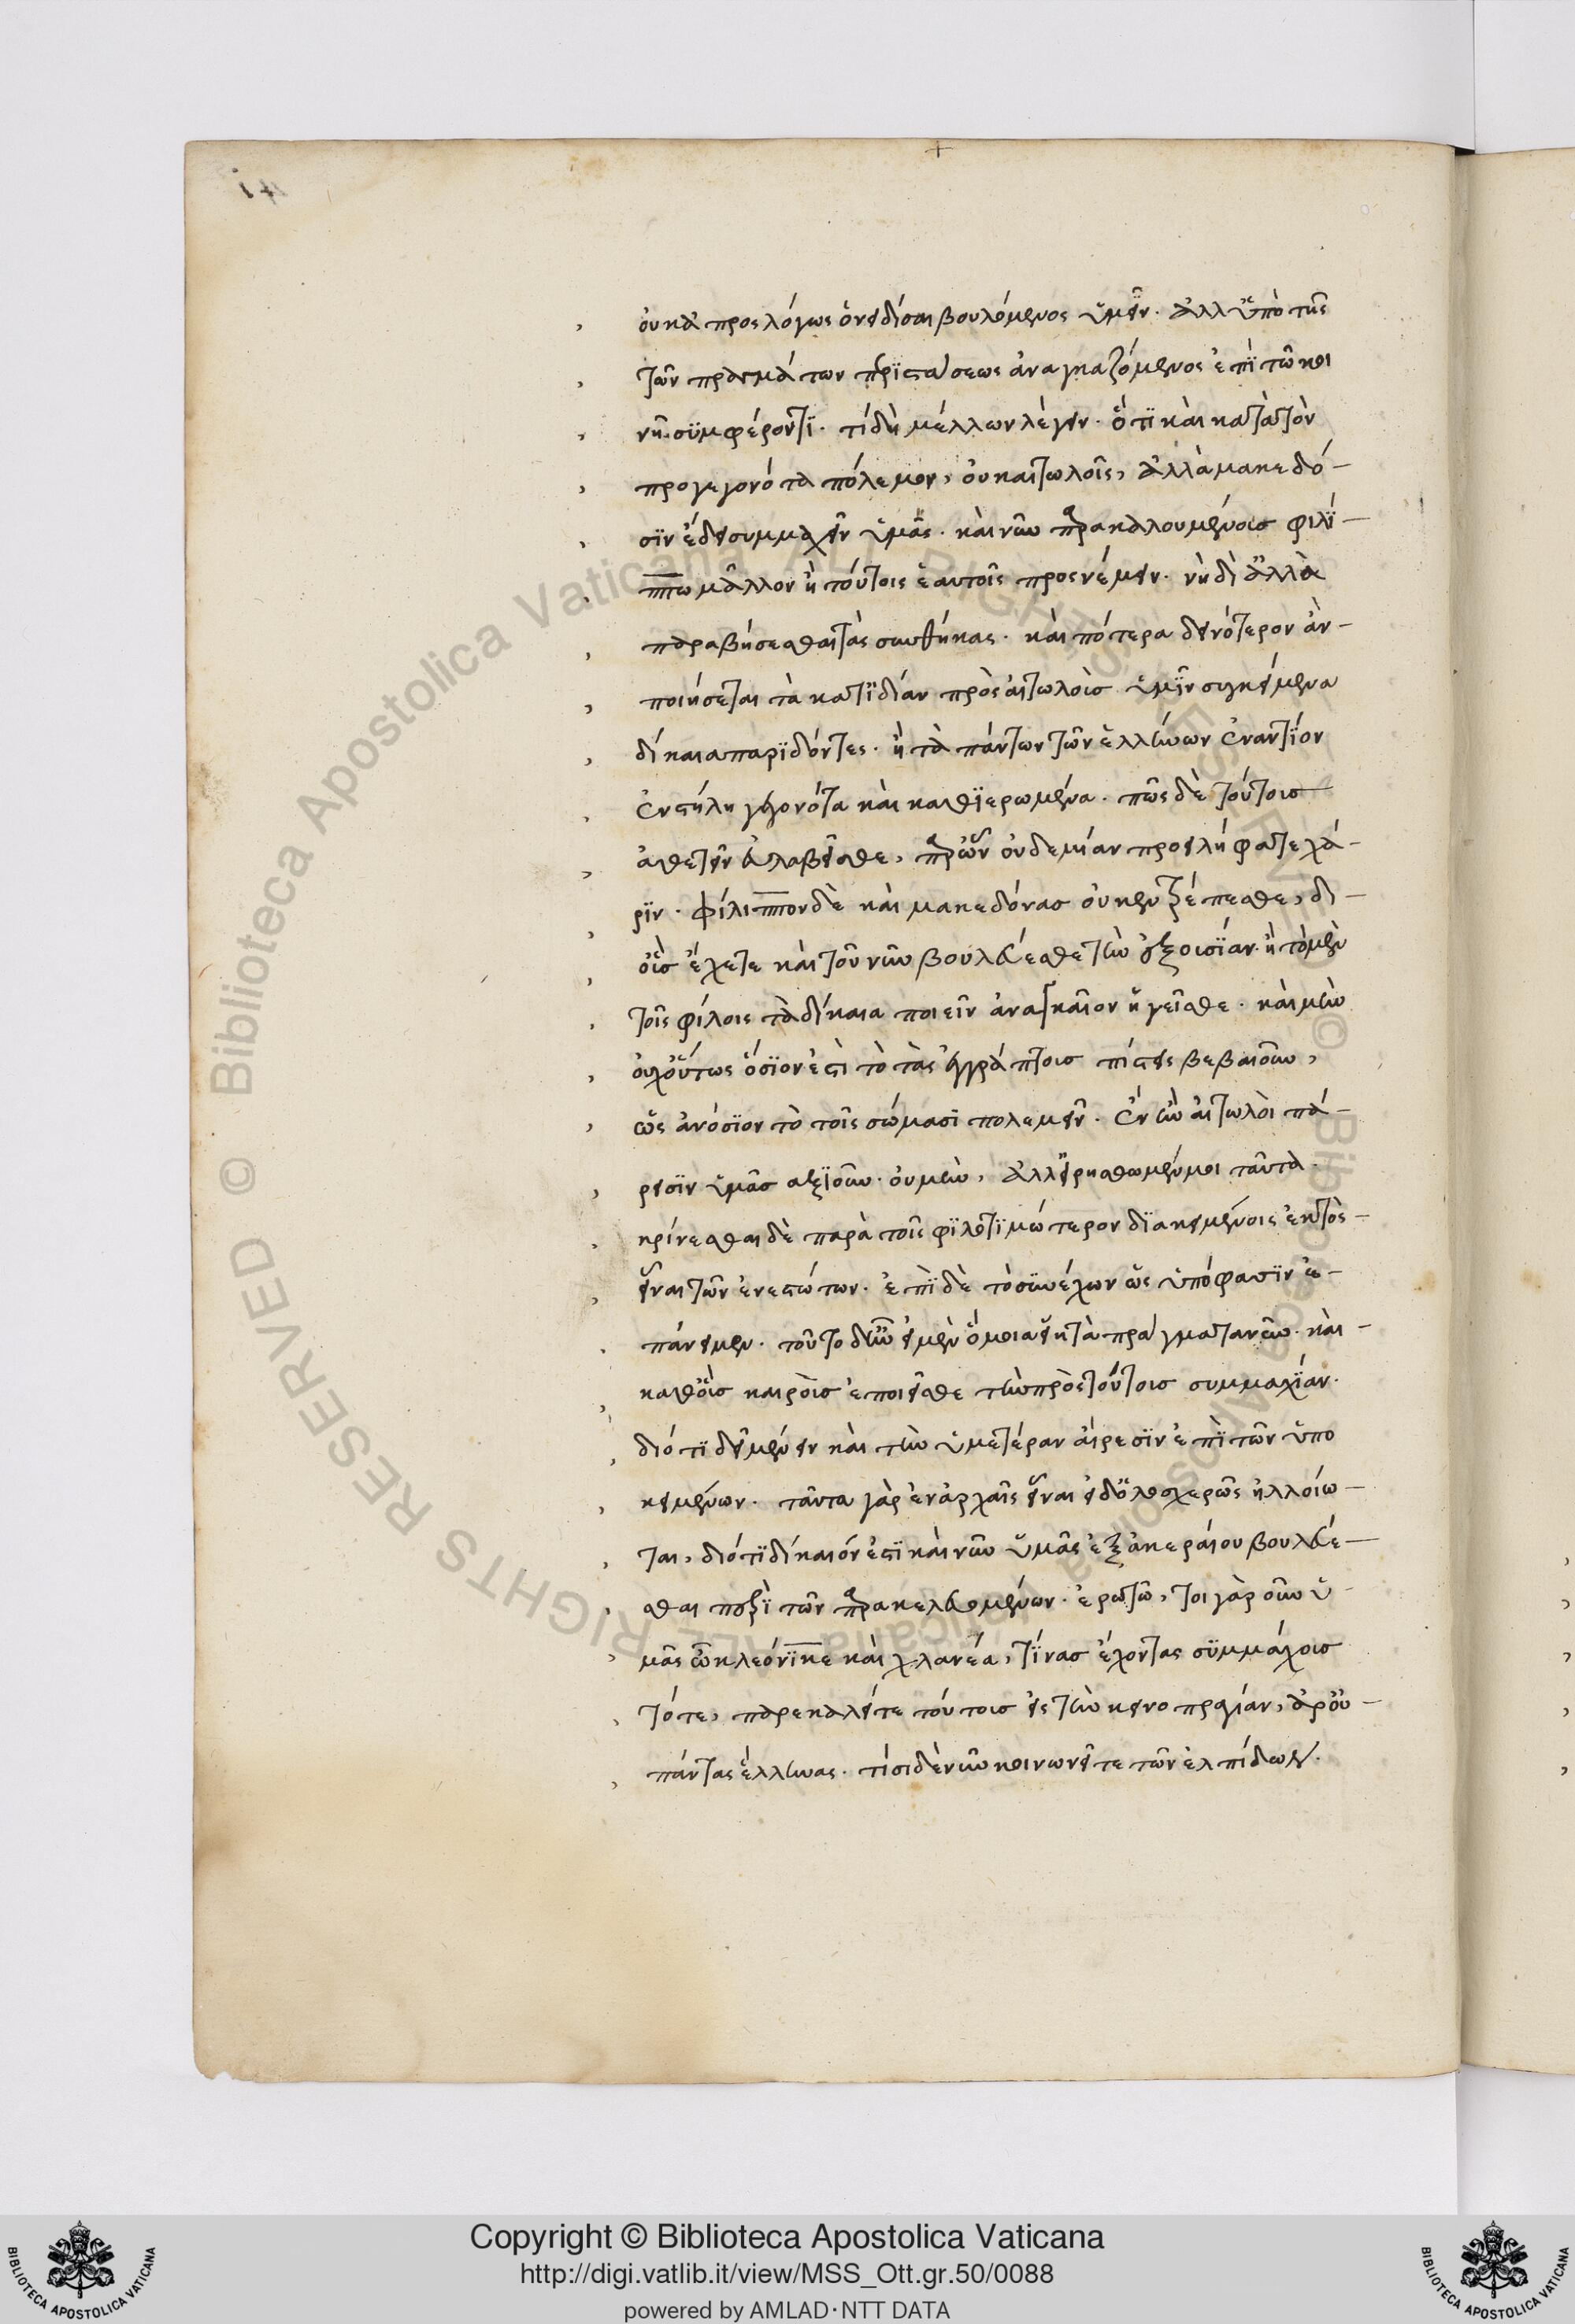 οὐκ ἀπροσλόγως ὀνειδίσαι βουλόμενος ὑμῖν. ἀλλ ὑπὸ τῆς
τῶν πραγμάτων περϊστάσεως ἀναγκαζόμενος ἐπὶ τῶ κοι
νῆ συμφέροντϊ. τί δὴ μέλλων λέγειν. ὅτϊ καὶ κατὰ τὸν
προγεγονότα πόλεμον, οὐκ αἰτωλοῖς, ἀλλὰ μακεδό-
σϊν ἔδει συμμαχεῖν ὑμᾶς. καὶ νῦν παρακαλουμένοισ φιλί-
ππω μᾶλλον ἢ τούτοις ἑαυτοῖς προσνέμειν. νὴ δὶ ἀλλὰ
παραβήσεσθαι τὰς συνθήκας. καὶ πότερα δεινότερον ἂν-
ποιήσεται τὰ κατϊδίαν πρὸς αἰτωλοὺσ ὑμῖν συγκείμενα
δίκαια παρϊδόντες. ἢ τὰ πάντων τῶν ἑλλήνων ἐναντίον
ἐν στήλη γεγονότα καὶ καθϊερωμένα. πῶς δὲ τούτουσ
ἀθετεῖν εὐλαβεῖσθε, παρῶν οὐδεμίαν προειλήφατε χά-
ρϊν. φίλιππον δὲ καὶ μακεδόνασ οὐκ ἐντρέπεσθε, δι-
οὓσ ἔχετε καὶ τοῦ νῦν βουλεύεσθε τὴν ἐξουσίαν. ἢ τὸ μὲν
τοῖς φίλοις τὰ δίκαια ποιεῖν ἀναγκαῖον ἡγεῖσθε. καὶ μὴν
οὐχ οὕτως ὅσϊόν ἐστὶ τὸ τὰς ἐγγράπτουσ πίστεις βεβαιοῦν,
ὡς ἀνόσϊον τὸ τοῖς σώμασϊ πολεμεῖν. ἐν ᾧ αἰτωλοὶ πά-
ρεισϊν ὑμᾶσ αξϊοῦν. οὐ μὴν, ἀλλ εἰρήσθω μέν μοι ταῦτα.
κρίνεσθαι δὲ παρὰ τοῖς φϊλοτϊμώτερον διακειμένοις ἐκτὸς-
εἶναι τῶν ἐνεστώτων. ἐπὶ δὲ τὸ συνέχων ὡς ὑπόφασϊν ἐ-
πάνειμεν. τοῦτο δὴν εἰ μὲν ὅμοιά εἰσὶ τὰ πράγματα νῦν. καὶ-
καθ οὓσ καιροὺσ ἐποιεῖσθε τὴν πρὸς τούτουσ συμμαχίαν.
διότϊ δεῖ μένειν καὶ τὴν ὑμετέραν αἵρεσϊν ἐπὶ τῶν ὑπο
κειμένων. ταῦτα γὰρ ἐν ἀρχαῖς εἶναι εἰ δ ὁλοσχερῶς ἠλλοίω-
ται, διότϊ δίκαιόν ἐστϊ καὶ νῦν ὑμᾶς ἐξ ἀκεραίου βουλεύε-
σθαι περὶ τῶν παρακελευομένων. ἐρωτῶ, τοι γὰρ οὖν ὑ-
μᾶς ὦ κλεόνϊκε καὶ χλανέα, τίνασ ἔχοντας συμμάχουσ
τότε, παρεκαλεῖτε τούτουσ εἰς τὴν κοινοπραγίαν, ἆρ οὐ-
πάντας ἕλληνας. τίσι δὲ νῦν κοινωνεῖτε τῶν ἐλπίδων.
Copyright © Biblioteca Apostolica Vaticana
http://digi.vatlib.it/view/MSS_Ott.gr.50/0088
powered by AMLAD·NTT DATA